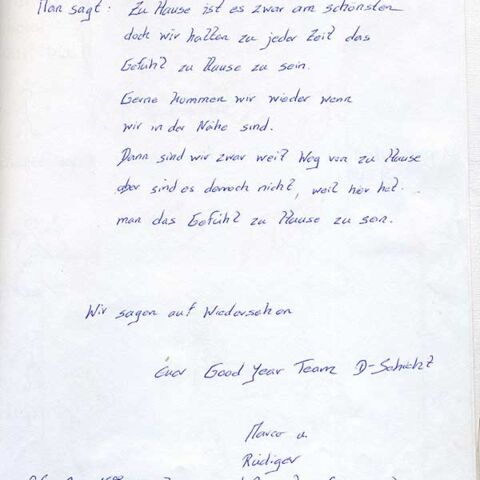 Man sagt: Zu Hause ist es zwar am schönsten
doch wir hatten zu jeder Zeit das
Gefühl zu Hause zu sein.
Gerne kommen wir wieder wenn
wir in der Nähe sind.
Dann sind wir zwar weit Weg von zu Hause
aber sind es dennoch nicht, weil hier hat..
man das Gefühl zu Hause zu sein.
Wir sagen auf Wiedersehen
Euer Good Year Team D-Schicht
Marco u.
Rüdiger